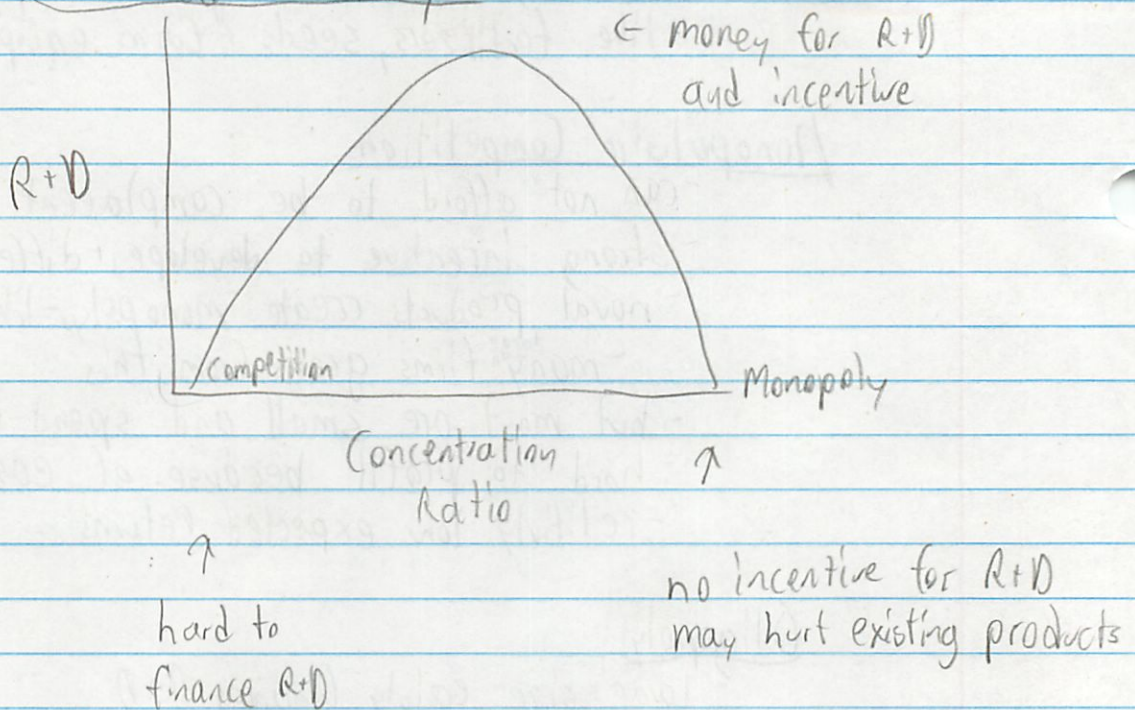 ← money for R+D
and incentive
R+D
Competition
Monopoly
Concentration
Ratio
↑
↑
hard to
finance R+D
no incentive for R+D
may hurt existing products